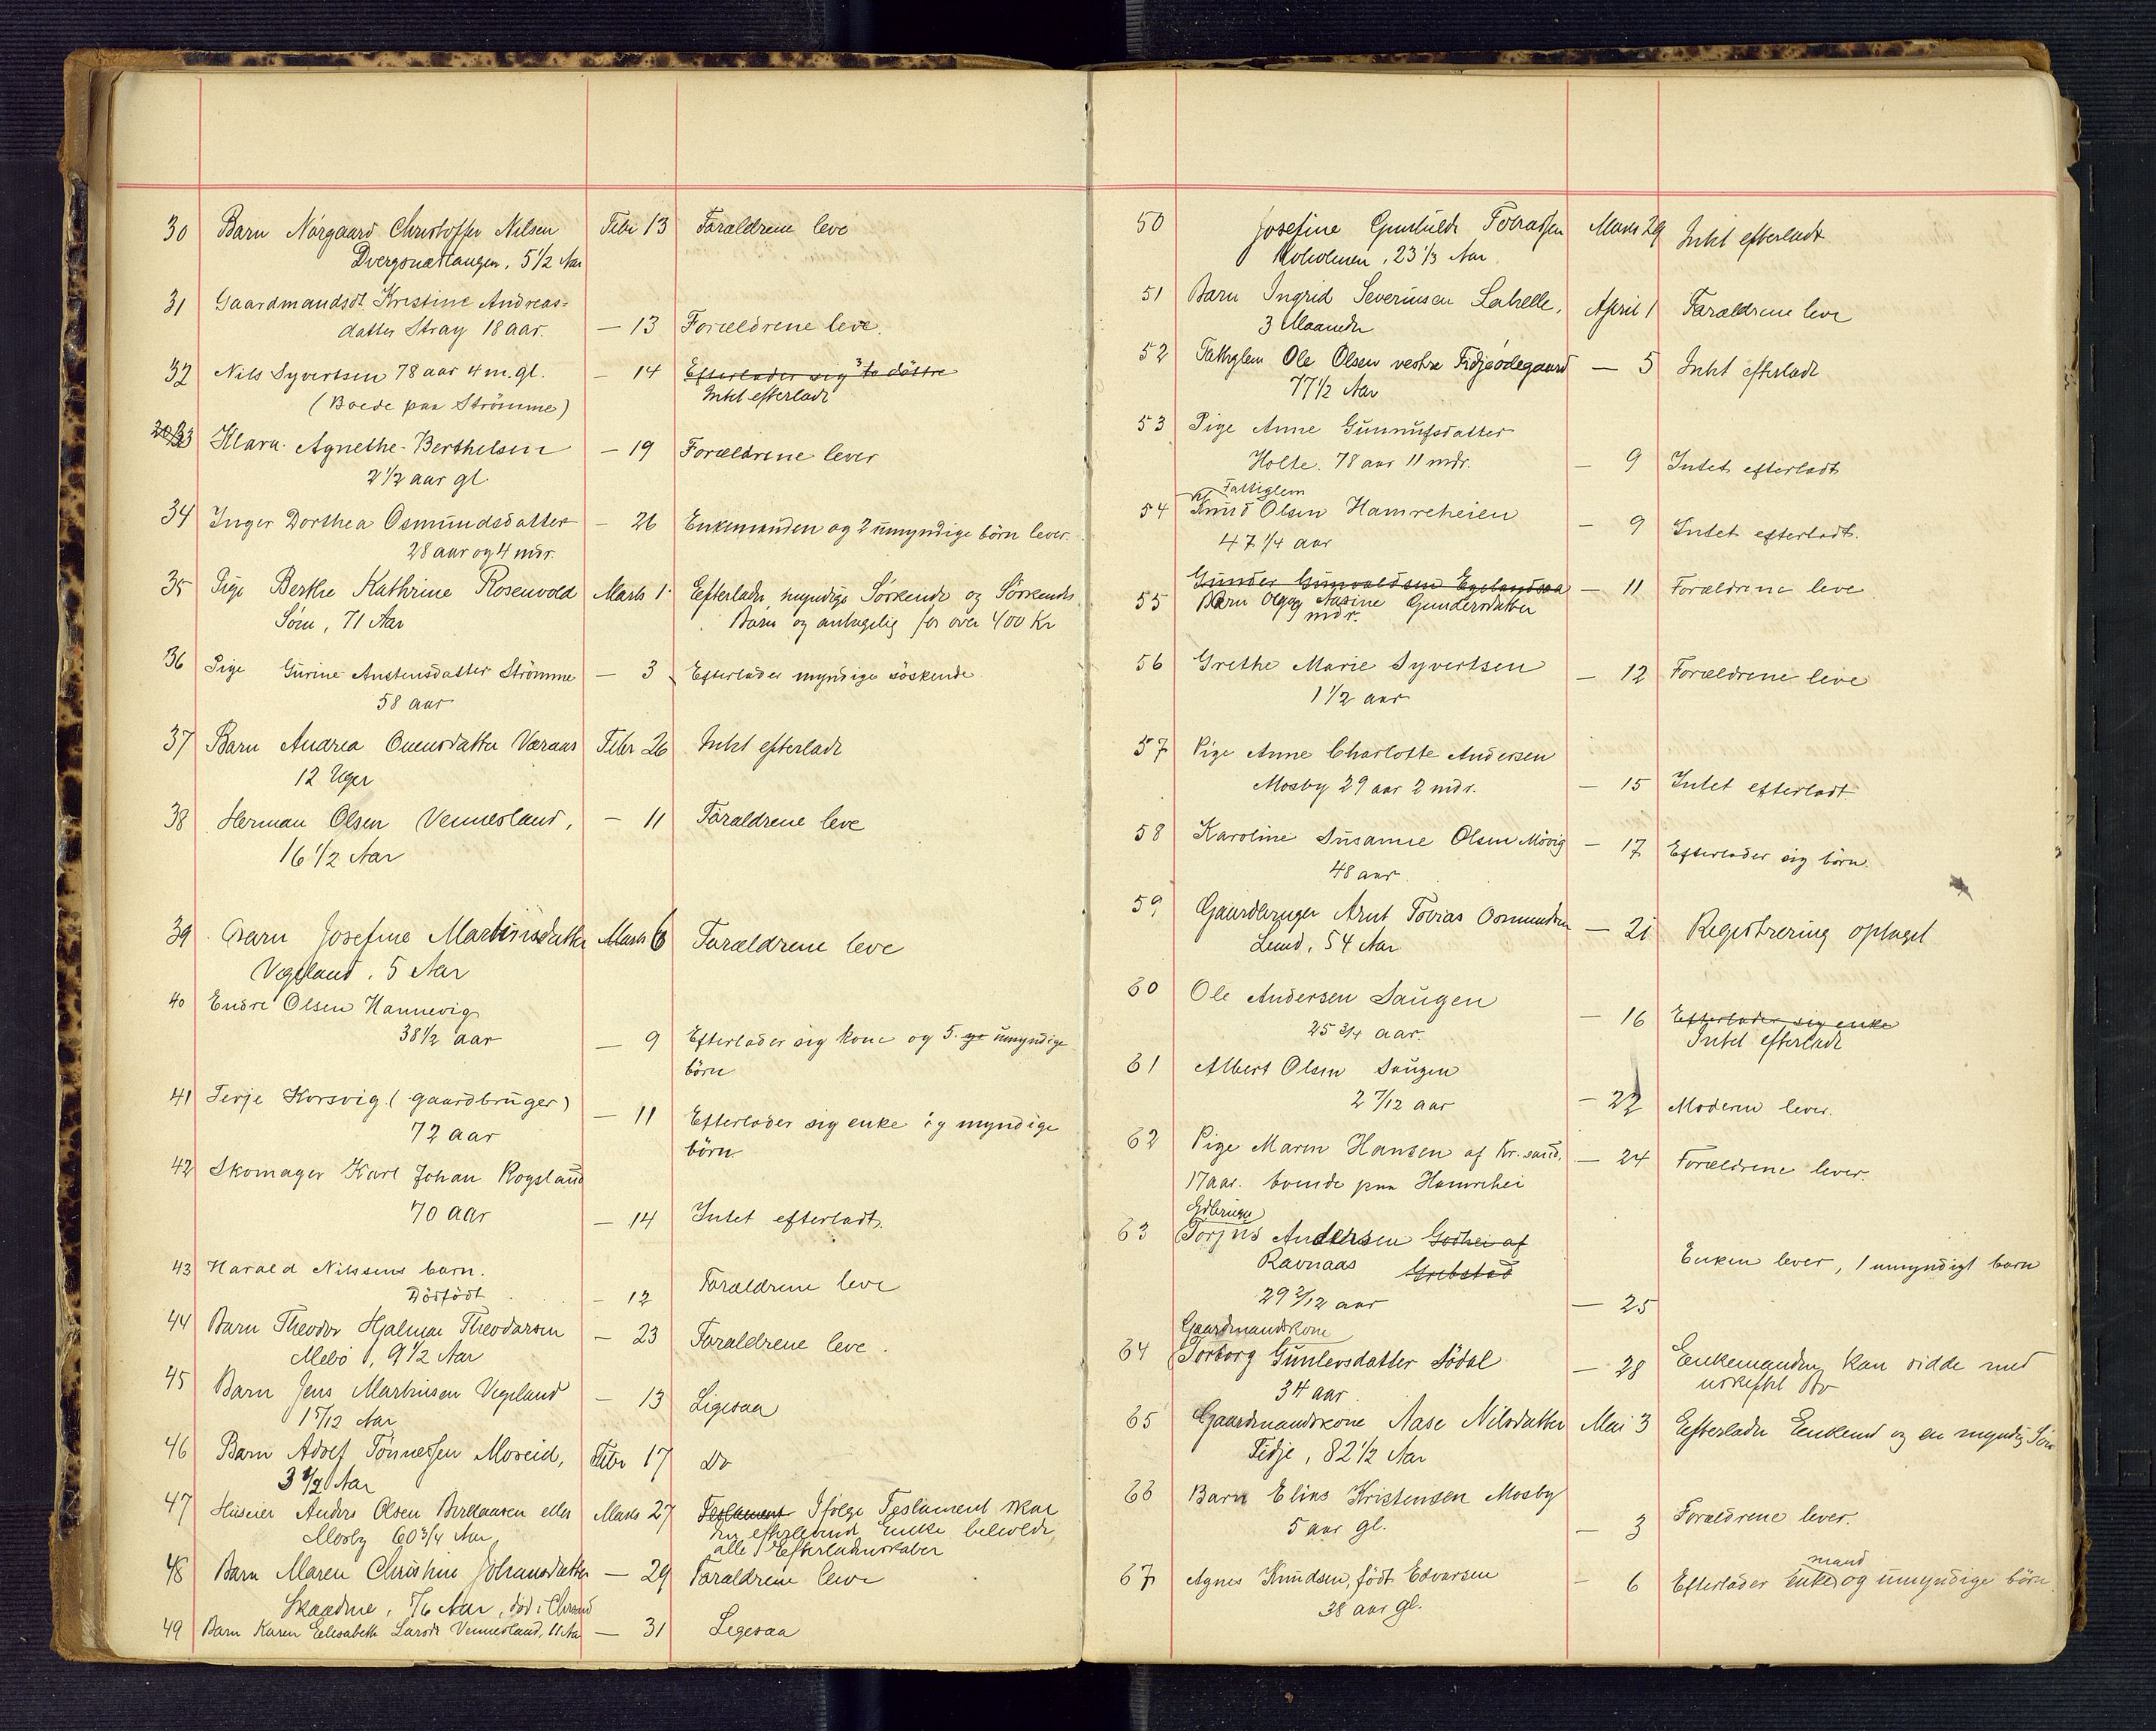 30 Barn Nörgaard Christoffer Nilsen Febr 13 Forældrene leve
Dvergsnæstangen, 5 1/2 Aar
31 Gaardmandsdt. Kristine Andreas-
datter Stray 18 aar. — 13 Forældrene leve.
32 Nils Syvertsen 78 aar 4 m. gl. — 14 Efterlader sig 3 to döttre
(Boede paa Strömme) Intet efterladt
33 Klara Agnethe Berthelsen — 19 Forældrene lever
2 1/2 aar gl.
34 Inger Dorthea Osmundsdatter — 26 Enkemanden og 2 umyndige börn lever.
28 aar og 4 mdr.
35 Pige Berthe Kathrine Rosenvold Marts 1 Efterlader myndige Söskende og Söskendes
Söm, 71 Aar Barn og antagelig for over 400 Kr
36 Pige Gurine Austensdatter Strömme — 3 Efterlader myndige söskende
58 aar
37 Barn Andrea Omensdatter Væraas Febr 26 Intet efterladt
12 Uger
38 Herman Olsen Vennesland, — 11 Forældrene leve
16 1/2 Aar
39 Barn Josefine Martinsdatter Marts 6 Forældrene leve
Vegeland, 5 Aar
40 Endre Olsen Hannevig
38 1/2 aar — 9 Efterlader sig kone og 5 umyndige
börn
41 Terje Korsvig (gaardbruger) — 11 Efterlader sig enke og myndige
72 aar börn
42 Skomager Karl Johan Rogsland
70 aar — 14 Intet efterladt.
43 Harald Nilssens barn.
Dödfödt — 12 Forældrene leve
44 Barn Theodor Hjalmar Theodorsen — 23 Forældrene leve.
Mebö, 9 1/2 Aar
45 Barn Jens Martinsen Vegeland — 13 Ligesaa
1 5/12 Aar
46 Barn Adolf Tönnessen Moseid, Febr 17 Do
3 1/2 Aar
47 Huseier Anders Olsen eller Marts 27 Testament Ifölge Testament skal
Mosby 60 3/4 Aar den efterlevende Enke beholde
alle Efterladenskaber
48 Barn Maren Christine Johansdatter — 29 Forældrene leve
5/6 Aar, död i Chrsand
49 Barn Karen Elisabeth Larsdt Vennesland, 11 Aar — 31 Ligesaa
50 Josefine Gunhilde Tobiassen Marts 29 Intet efterladt
Koholmen, 23 1/3 Aar
51 Barn Ingrid Severinsen Lahelle, April 1 Forældrene leve
3 Maaneder
52 Fattiglem Ole Olsen vestre Fidjeödegaard — 5 Intet efterladt
77 1/2 Aar
53 Pige Anne Gunnufsdatter
Holte. 78 aar 11 mdr. — 9 Intet efterladt
Fattiglem
54 Knud Olsen Hamreheien — 9 Intet efterladt.
47 1/4 aar
Gunder Gunvaldsen Egelandsaa — 11 Forældrene leve
55 Barn Olga Aasine Gundersdatter
9 mdr.
56 Grethe Marie Syvertsen — 12 Forældrene leve
1 1/2 aar
57 Pige Anne Charlotte Andersen
Mosby 29 aar 2 mdr. — 15 Intet efterladt
58 Karoline Susanne Olsen Mövig — 17 Efterlader sig börn.
48 aar
59 Gaardbruger Arnt Tobias Osmundsen — 21 Registrering optaget
Lund, 54 Aar
60 Ole Andersen Saugen — 16 Efterlader sig enke
25 3/4 aar. Intet efterladt
61 Albert Olsen Saugen
2 7/12 aar — 22 Moderen lever.
62 Pige Maren Hansen af Kr.sand. — 24 Forældrene lever.
17 aar. boende paa Hamrehei
Gdbruger
63 Torjus Andersen Godhei af
Ravnaas Grebstad Enken lever, 1 umyndigt barn
29 2/12 aar — 25
Gaardmandskone
64 Torborg Gunlevsdatter Södal — 28 Enkemanden kan sidde med
34 aar. uskiftet Bo
65 Gaardmandskone Aase Nilsdatter Mai 3 Efterlader Enkemd og en myndig Sön
Fidje, 82 1/2 Aar
66 Barn Elias Kristensen Mosby
5 aar gl. — 3 Forældrene lever.
67 Agnes Knudsen, födt Edvarsen — 6 Efterlader enkemand og umyndige börn.
38 aar gl.